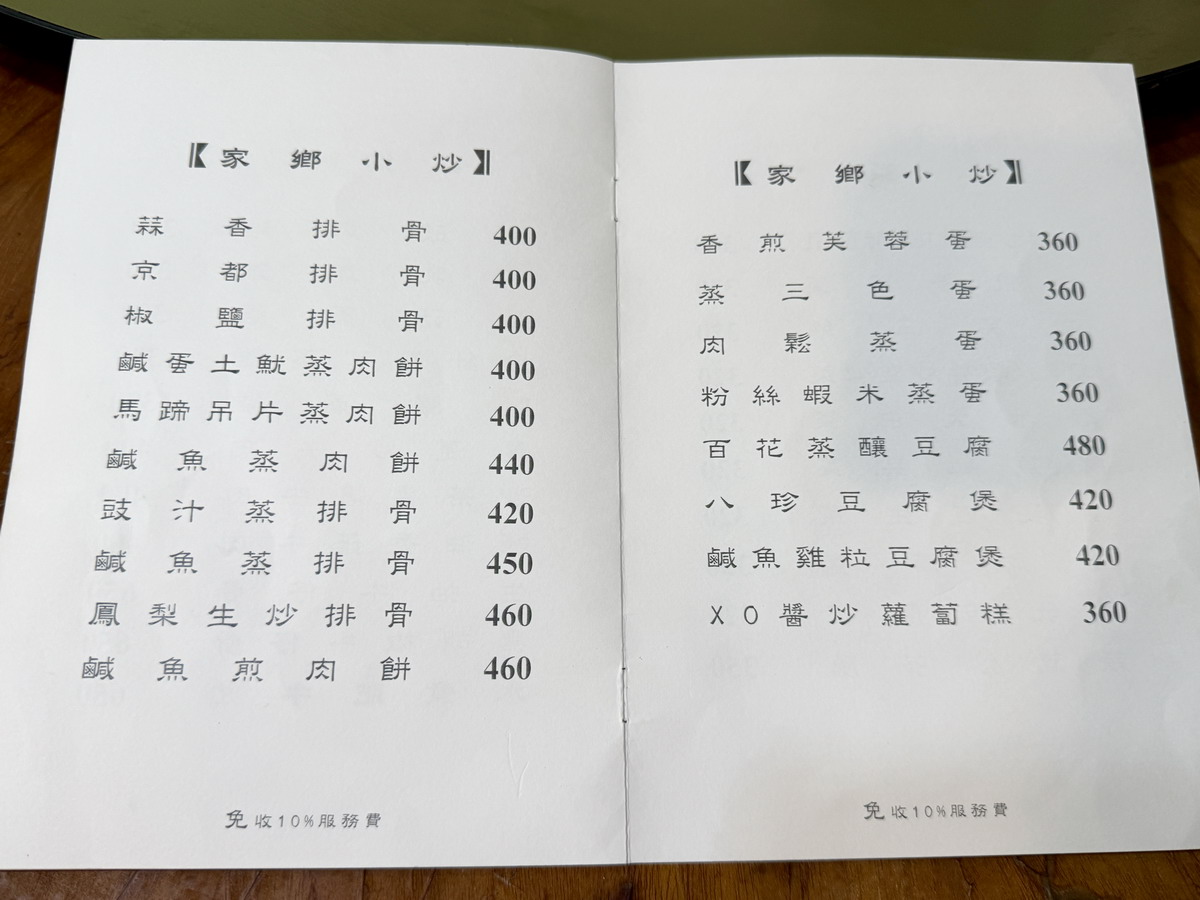 【家鄉小炒】
蒜香排骨 400
京都排骨 400
椒鹽排骨 400
鹹蛋土魷蒸肉餅 400
馬蹄吊片蒸肉餅 400
鹹魚蒸肉餅 440
豉汁蒸排骨 420
鹹魚蒸排骨 450
鳳梨生炒排骨 460
鹹魚煎肉餅 460
免收10%服務費
【家鄉小炒】
香煎芙蓉蛋 360
蒸三色蛋 360
肉鬆蒸蛋 360
粉絲蝦米蒸蛋 360
百花蒸釀豆腐 480
八珍豆腐煲 420
鹹魚雞粒豆腐煲 420
XO醬炒蘿蔔糕 360
免收10%服務費